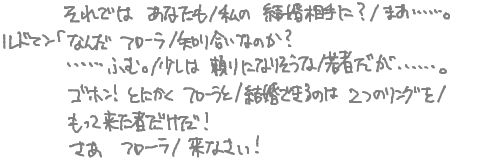 それでは あなたも/私の 結婚相手に?/まあ……。
ルドマン「なんだ フローラ/知り合いなのか?
……ふむ。/少しは 頼りになりそうな/若者だが……。
ゴホン! とにかく フローラと/結婚できるのは 2つのリングを/
もって来た者だけだ!
さあ フローラ/来なさい!